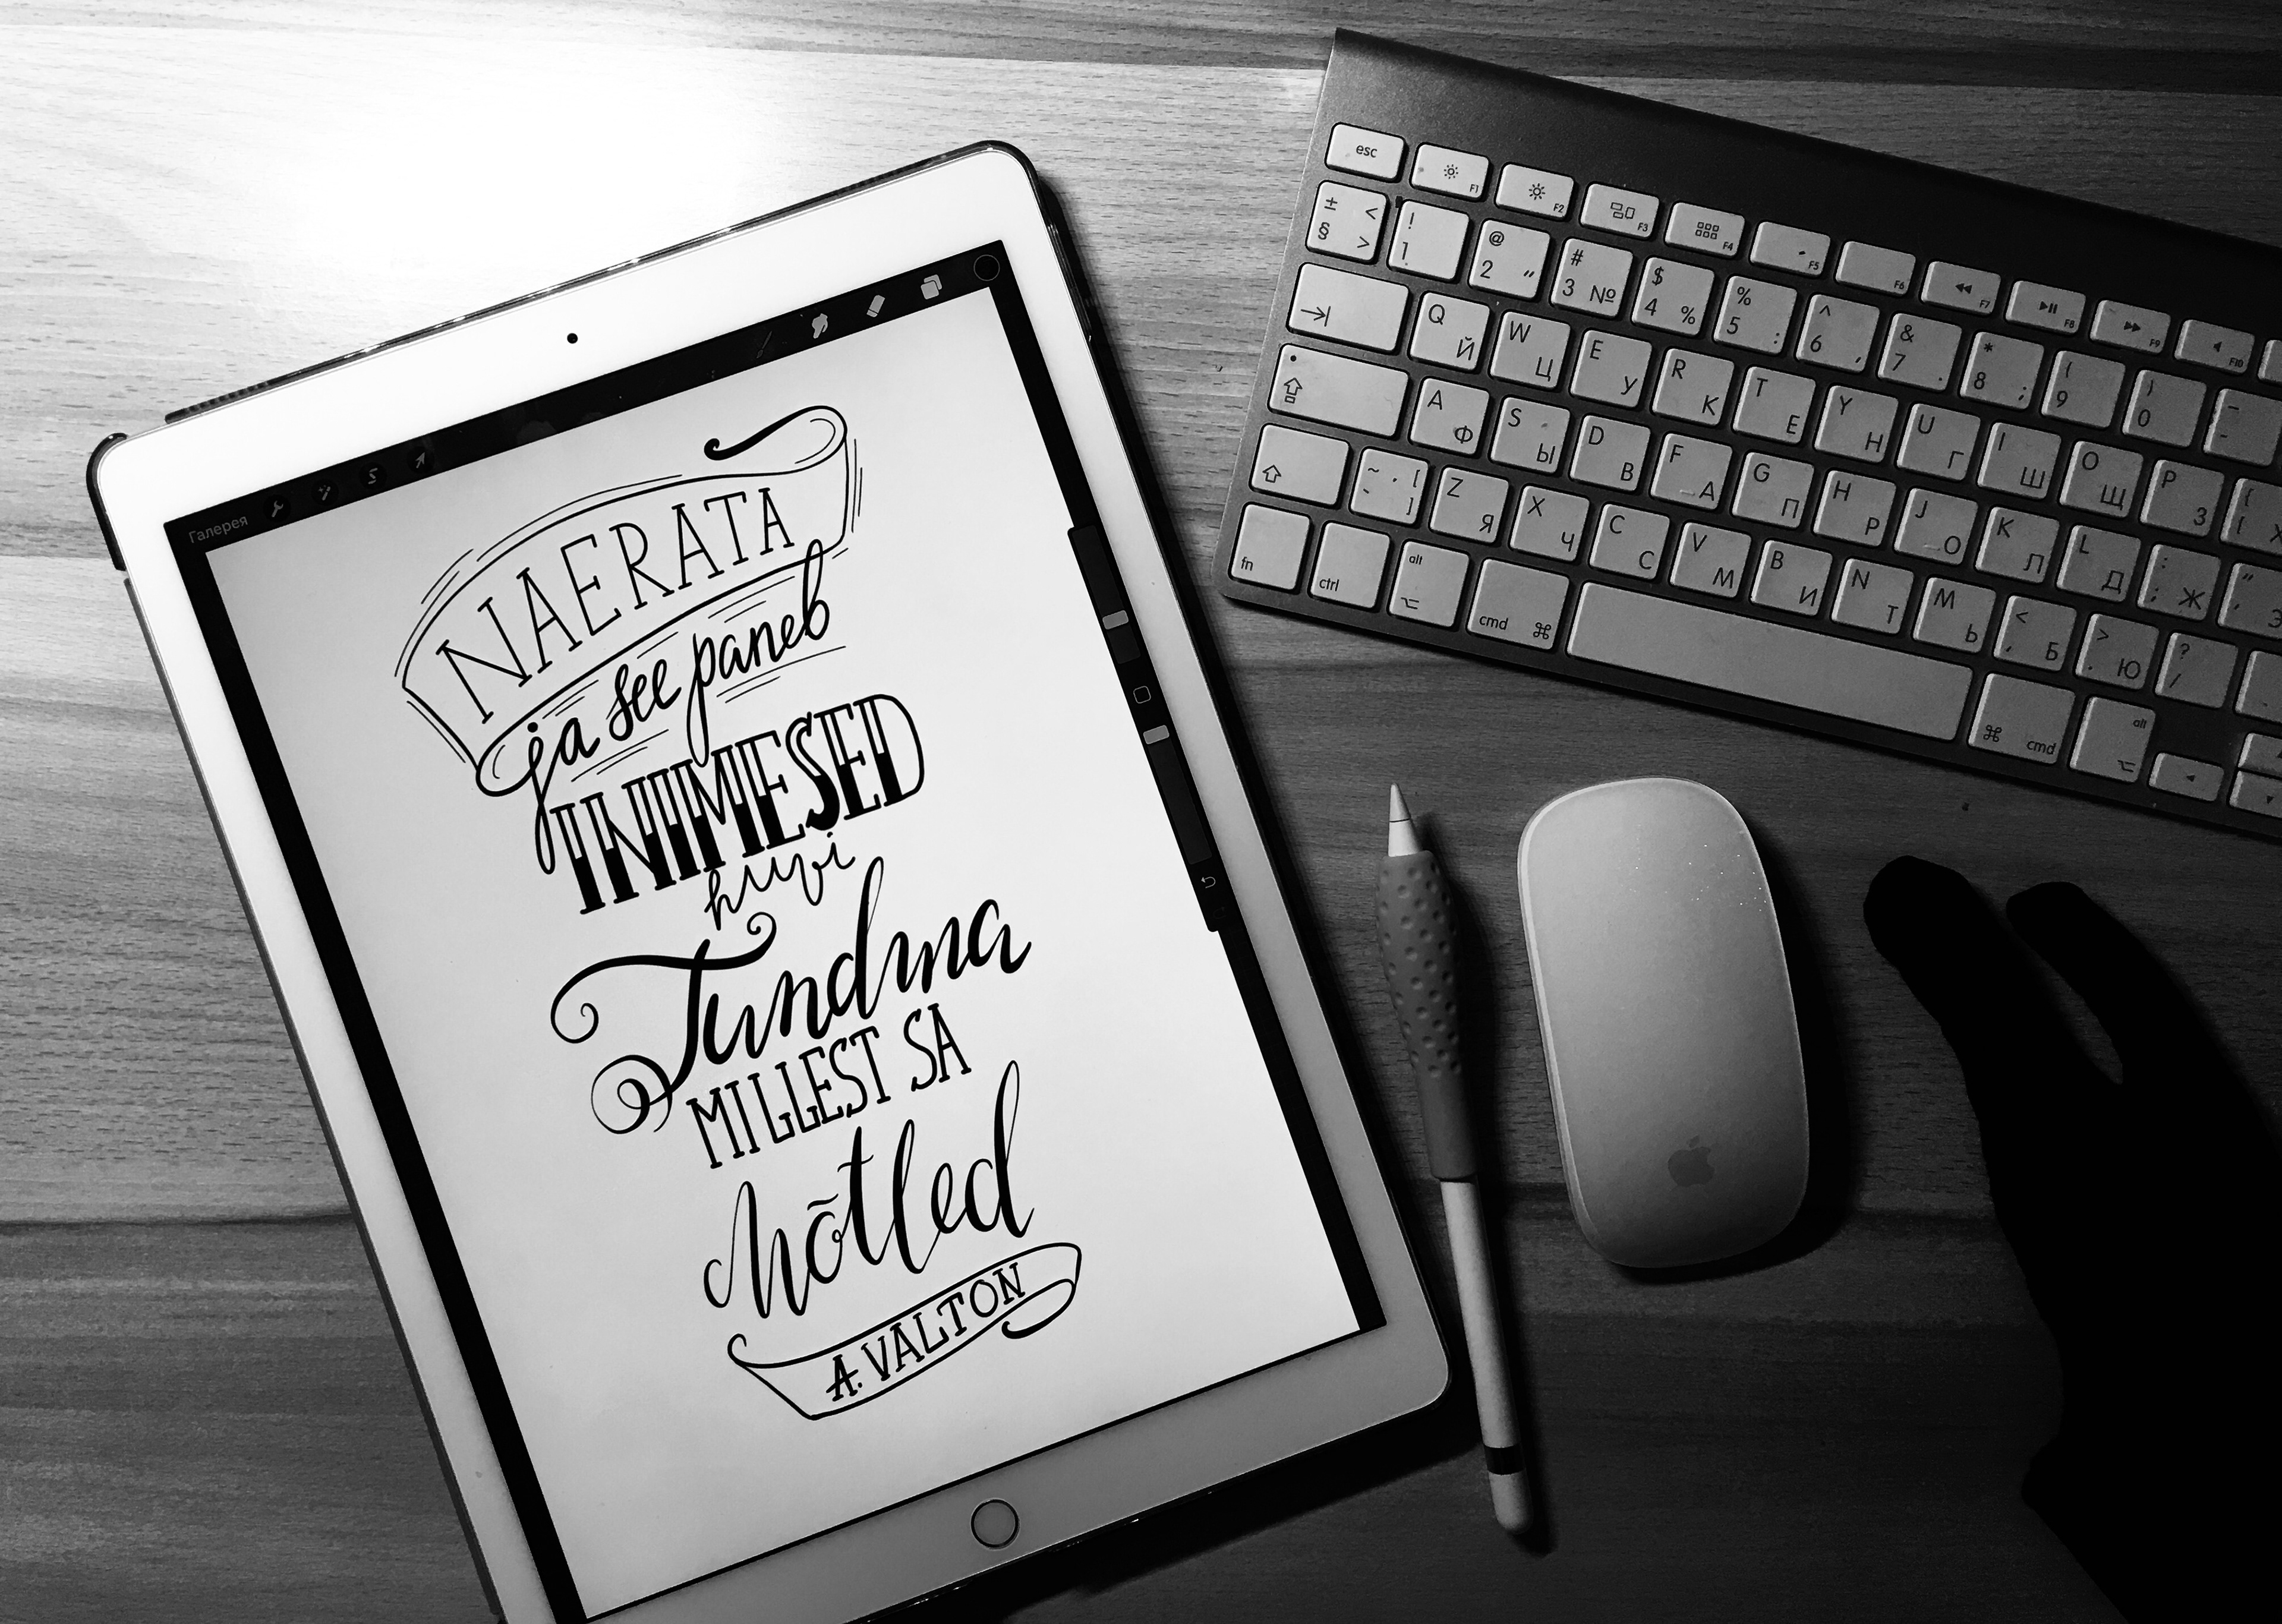 Галерея
NAERATA
ja see paneb
INIMESED
huvi
Tundma
MILLEST SA
Mõtled
A. VALTON
esc F1 F2 F3 F4 F5 F6 F7 F8 F9 F10
± § < > ! 1 @ 2 " # 3 № $ 4 % % 5 : ^ 6 , & 7 . * 8 ; ( 9 ) 0 _ -
Q Й W Ц E У R К T Е Y Н U Г I Ш O Щ P З { [ Х
A Ф S Ы D В F А G П H Р J О K Л L Д : ; Ж " ' Э
~ ` [ ] Z Я X Ч C С V М B И N Т M Ь < , Б > . Ю ? /
fn ctrl alt ⌥ cmd ⌘ ⌘ cmd alt ⌥